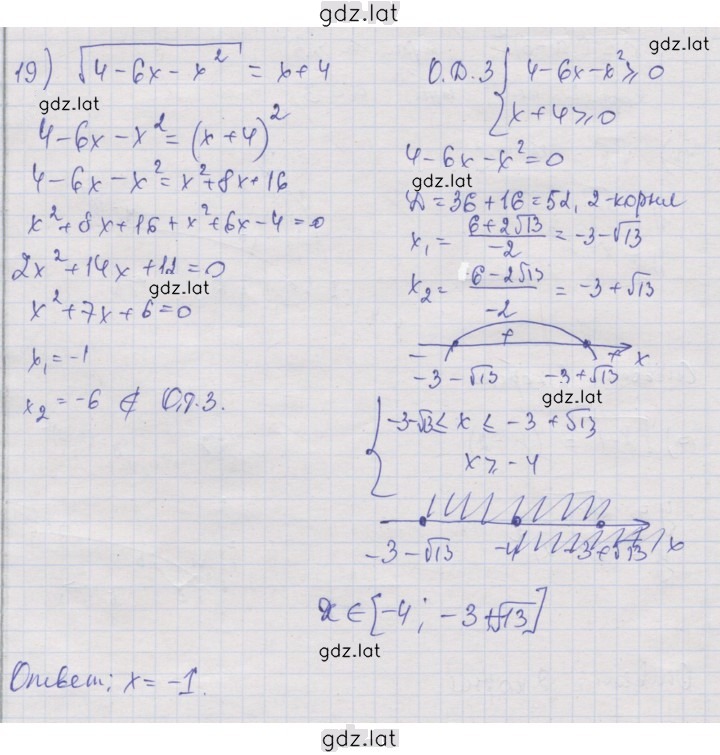 gdz.lat
19) √(4 - 6x - x²) = x + 4
gdz.lat
4 - 6x - x² = (x + 4)²
4 - 6x - x² = x² + 8x + 16
x² + 8x + 16 + x² + 6x - 4 = 0
2x² + 14x + 12 = 0
gdz.lat
x² + 7x + 6 = 0
x₁ = -1
x₂ = -6 ∉ О.Д.З.
gdz.lat
О.Д.З { 4 - 6x - x² ⩾ 0
x + 4 ⩾ 0
4 - 6x - x² = 0
gdz.lat
Д = 36 + 16 = 52, 2-корня
x₁ = (6 + 2√13)/(-2) = -3 - √13
x₂ = (6 - 2√13)/(-2) = -3 + √13
- + + x
-3 - √13 -3 + √13
gdz.lat
{ -3 - √13 ≤ x ≤ -3 + √13
x ⩾ -4
-3 - √13 -4 -3 + √13 x
x ∈ [-4; -3 + √13]
gdz.lat
Ответ: x = -1.
gdz.lat